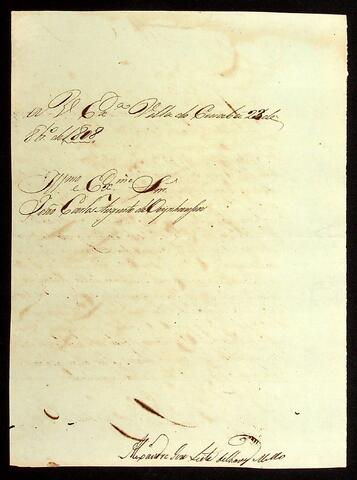 a V. Ex.ª Villa do Cuiabá 23 de
8br.º de 1808
Illmo e Exmo Snr.
João Carlos Augusto de Oeynhausen
Alexandre Jose Leite de Mello